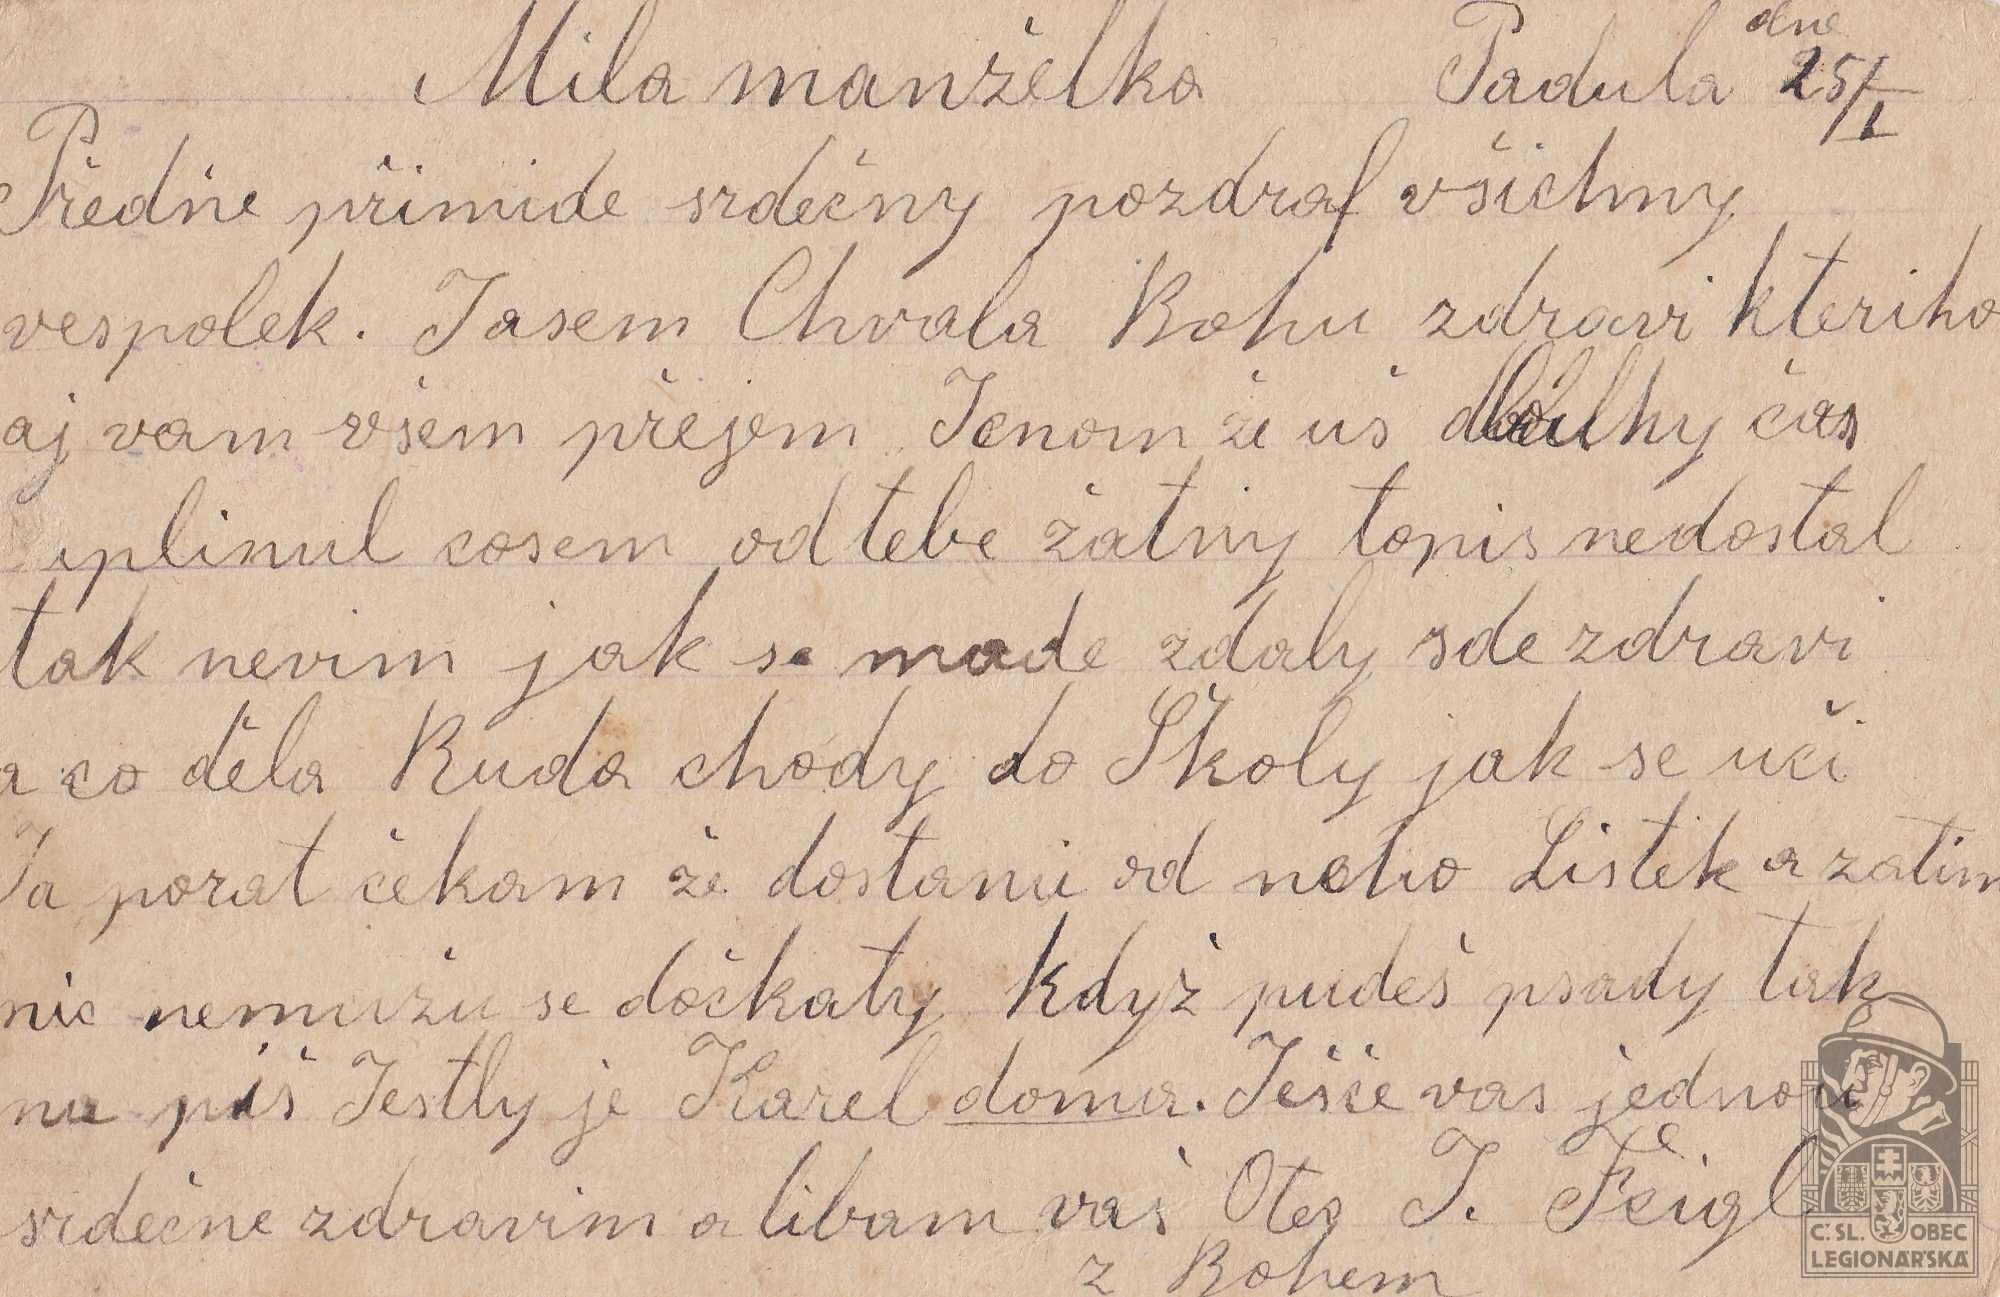 Mila manželka Padula dne 25/I
Předňe přimide srdečny pozdraf všichny
vespolek. Jasem Chvala Bohu zdravi kteriho
aj vam všem přejem Jenom že uš dlouhy čas
uplinul cosem od tebe žatny topis nedostal
tak nevim jak se made zdaly sde zdravi
a co ďela Ruda chody do Školy jak se uči
Ja porat čekam že dostanu od neho Listek a zatim
nic nemužu se dočkaty když pudeš psady tak
na piš Jestly je Karel doma. Ješče vas jednouc
srdečne zdravim a libam vaš Otec J. Feigl
z Bohem
Č. SL. OBEC
LEGIONÁŘSKÁ